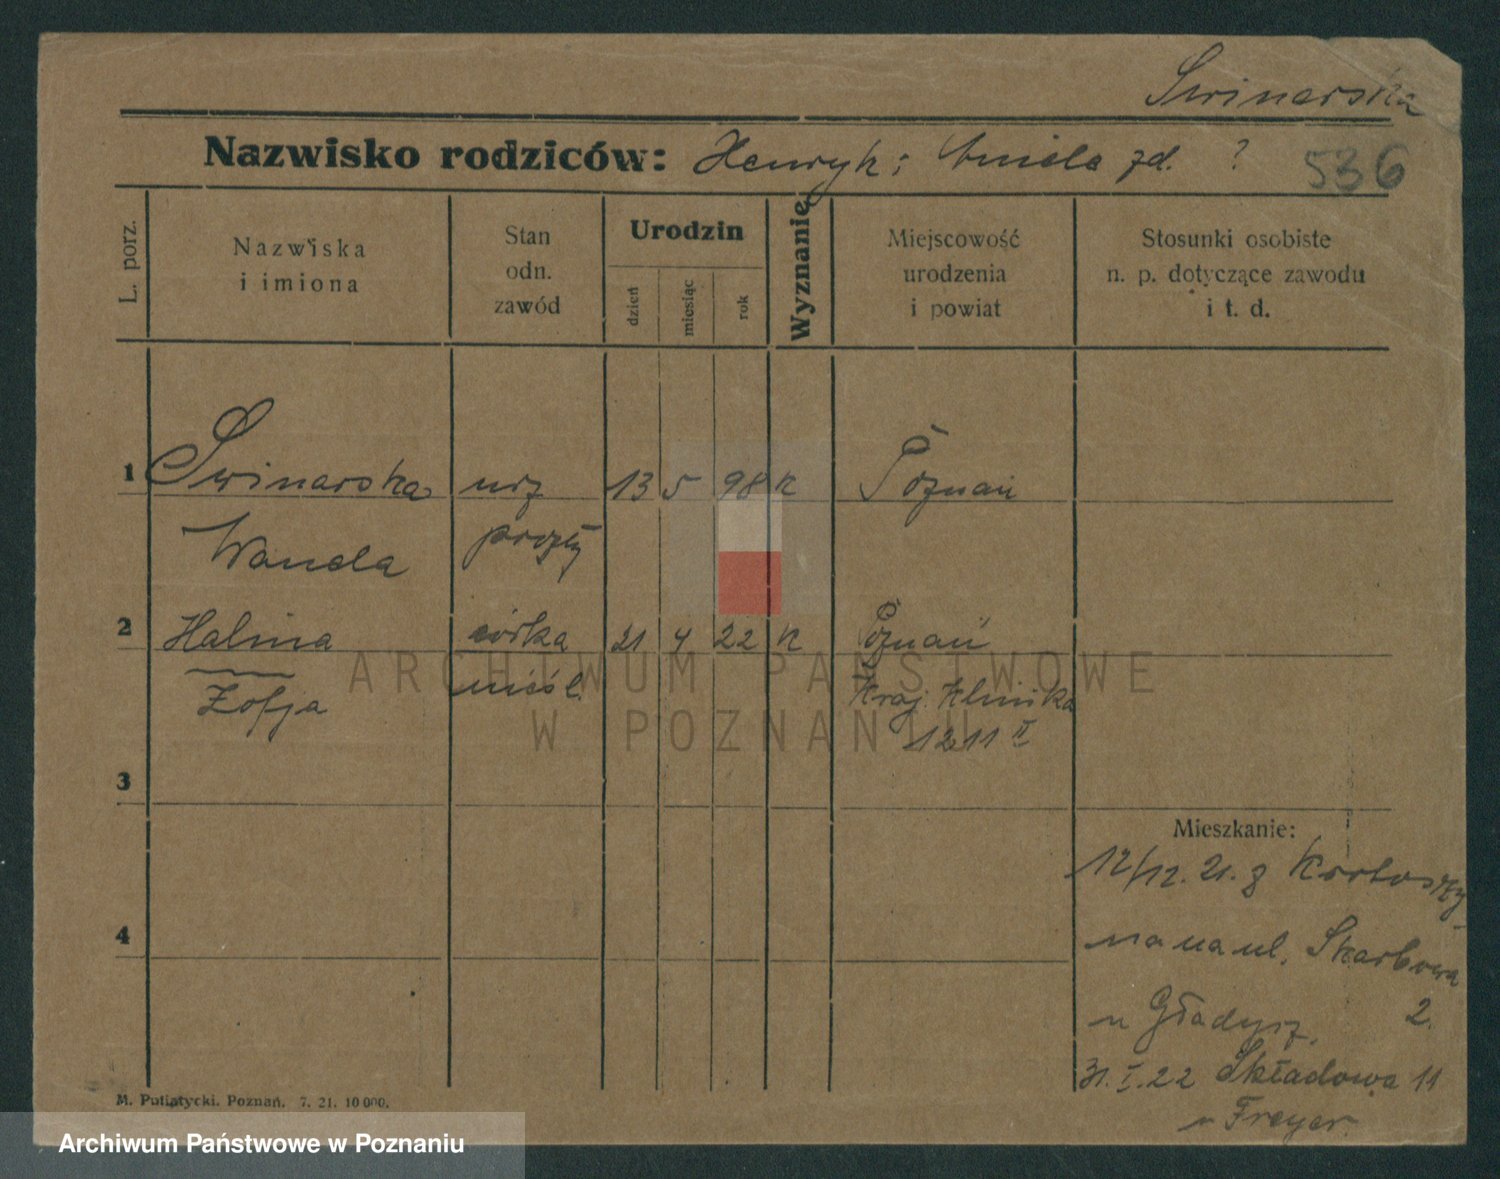 Swinarska
Nazwisko rodziców: Henryk; Aniela zd. ? 536
L. porz.
Nazwiska
i imiona
Stan
odn.
zawód
Urodzin
dzień
miesiąc
rok
Wyznanie
Miejscowość
urodzenia
i powiat
Stosunki osobiste
n. p. dotyczące zawodu
i t. d.
1 Swinarska urz 13 5 98 k Poznań
Wanda poczty
2 Halina córka 21 4 22 k Poznań
Zofja nieśl. Kraj. Klinika
1211 II
3
4
Mieszkanie:
12/12. 21. z Krotoszy
na na ul. Skarbowa
2.
u Gładysz.
31. I. 22 Składowa 11
u Freyer.
M. Putiatycki. Poznań. 7. 21. 10 000.
ARCHIWUM PAŃSTWOWE
W POZNANIU
Archiwum Państwowe w Poznaniu